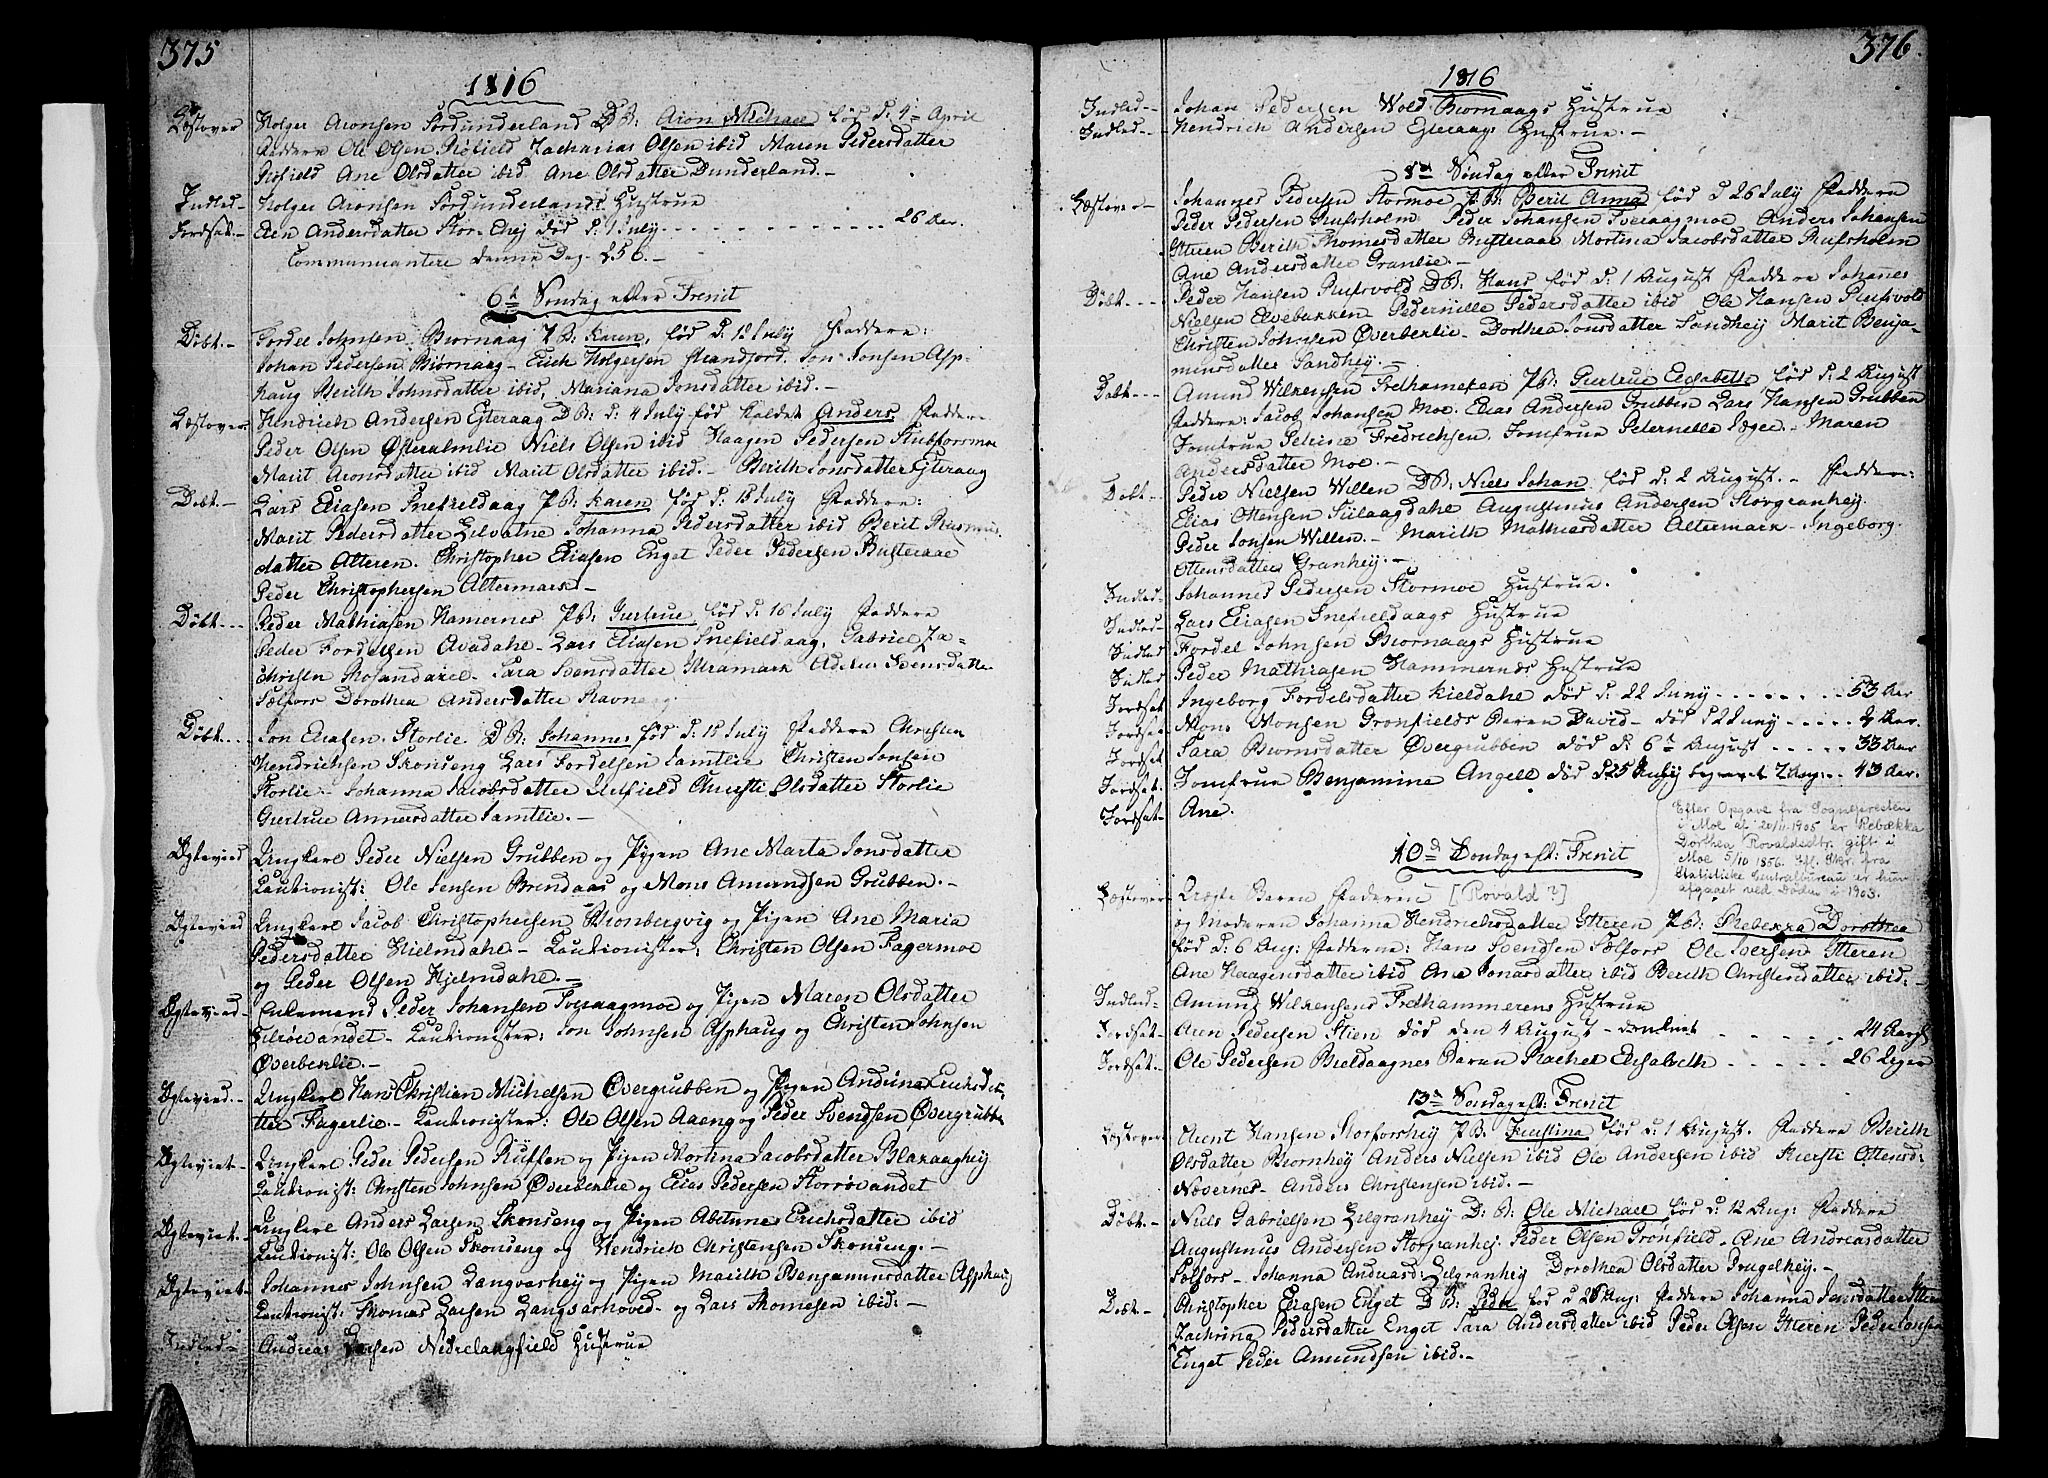 375
1816
Læstover Holger Aronsen Nordunderland D.B: Aron Michael fød d: 4 April
Faddere Ole Olsen Røfield Zacharias Olsen ibid Maren Pedersdatter
Røfield Ane Olsdatter ibid Ane Olsdatter Dunderland.-
Indled- Holger Aronsen Nordunderlands Hustrue
Jordsat.- Elen Andersdatter Stor-Ehej død d: 1 July 26 Aar.
Communicantere denne Dag 256.-
6te Søndag efter Trenit
Døbt.- Fordel Johnsen Biornaag P.B: Karen, fød d. 12 July Faddere:
Johan Pedersen Biørnaag- Erich Holgersen Strandjord. Jon Jonsen Asp-
haug Berith Johnsdatter ibid, Mariana Jonsdatter ibid.-
Læstover Hendrich Andersen Ejteraag D.B: d: 4 July fød kaldet Anders Faddere
Peder Olsen Østeralmlie Niels Olsen ibid Haagen Pedersen Stubforsmoe
Marit Aronsdatter ibid Marit Olsdatter ibid.- Berith Jonsdatter Ejteraag
Døbt.- Lars Eliasen Snefieldaag P.B: Karen fød d: 18 July Faddere:
Marit Pedersdatter Johanna Pedersdatter ibid Berit Rasmus-
datter Alteren. Christopher Eliasen Enget Peder Pedersen Busteraae
Peder Christophersen Altermark.-
Døbt- Peder Mathiasen Hamernes P.B: Gertrue fød d: 16 July Faddere
Peder Fordelsen Avadahl- Lars Eliasen Snefieldaag, Gabriel Za-
chrisen Rosandaxel- Sara Svensdatter Adelus Svensdatter
Sælfors Dorothea Andersdatter
Døbt.- Jon Eliasen Storlie. D.B: Johannes fød d: 15 July Faddere Christen
Hendrichsen Skonseng Lars Fordelsen Jamtlie Christen Jonsen
Storlie- Johanna Jacobsdatter Kiersti Olsdatter Storlie
Gertrue Annersdatter Jamtlie.-
Egtevied Ungkarl Peder Nielsen Grubben og Pigen Ane Marta Jonsdatter
Cautionist: Ole Jensen Brendaas og Mons Amundsen Grubben.-
Egtevied Ungkarl Jacob Christophersen Bronbergvig og Pigen Ane Maria
Pedersdatter Hielmdahl- Cautionister: Christen Olsen Fagermoe
og Peder Olsen Hjelmdahl.-
Egtevied- Enkemand Peder Johansen Sveraagmoe og Pigen Maren Olsdatter
Lilrøevandet- Cautionister: Jon Johnsen Asphaug og Christen Johnsen
Øverbeklie.-
Egtevied.- Ungkarl Hans Christian Michelsen Øvergrubben og Pigen Andrina Erichsdat-
ter Fagerlie.- Cautionister: Ole Olsen Aaeng og Peder Svendsen Øvergrubben
Egteviet- Ungkarl Peder Pedersen Ruffen og Pigen Mortina Jacobsdatter Blakaaghej
Cautionist: Christen Johnsen Øverbeklie og Elias Pedersen Storrøevandet
Egteviet- Ungkarl Anders Larsen Skonseng og Pigen Abelunes Erichsdatter ibid
Cautionist: Ole Olsen Skonseng og Hendrich Christensen Skonseng.-
Egteviet- Johannes Johnsen Langvashej og Pigen Marith Benjaminsdatter Asphaug
Cautionist: Thomas Larsen Langvashoved- og Lars Thomesen ibid:-
Indled- Andreas Larsen Nedrelangfield Hustrue
376
1816
Indled- Johan Pedersen Wold Biornaags Hustrue
Indled- Hendrich Andersen Ejteraag Hustrue.-
8de Søndag efter Trenit
Læstover- Johannes Pedersen Stormoe P.B: Berit Anna fød d 26 July Faddere
Peder Pedersen Rufsholm Peder Johansen Sveraagmoe Anders Johansen
Ytteren Berith Thomesdatter Busteraae Mortina Jacobsdatter Rufsholm
Ane Andersdatter Granlie.-
Døbt- Peder Hansen Rufsvold D.B: Hans fød d: 1 August Faddere Johannes
Nielsen Elvebakken Pedernille Pedersdatter ibid Ole Hansen Rufsvold
Christen Johnsen Øverbeklie. Dorthea Jonsdatter Sandhej Marit Benja-
minsdatter Sandhej.-
Døbt- Amund Wilkensen P.B: Gertrue Elisabeth fød d: 2 August
Faddere: Jacob Johansen Moe. Elias Andersen Grubben Lars Hansen Grubben
Jomfrue Selvine Fredrichsen. Jomfrue Peternelle Jæger- Maren
Andersdatter Moe.-
Døbt- Peder Nielsen Willen D.B: Niels Johan fød d: 2 August.- Faddere:
Elias Ottensen Silaagdahl Augustinus Andersen Storgranhej
Peder Jonsen Willen.- Marith Mathiasdatter Altermark- Ingeborg
Ottensdatter Granhej.-
Indled- Johannes Pedersen Stormoe Hustrue.
Indled- Lars Eliasen Snefieldaags Hustrue
Indled Fordel Johnsen Biornaags Hustrue
Indled Peder Mathiasen Hammernes Hustrue
Jordsat Ingeborg Fordelsdatter Kieldahl død d: 22 Juny 53 Aar
Jordsat- Mons Monsen Grønfields Baren David- død d 2 Juny Aar.
Jordsat Sara Biornsdatter Øvergrubben død d: 6te August 33 Aar
Jordsat- Jomfrue Benjamine Angell død d 25 July begravet 2 Aug: 43 Aar.
Jordsat- Ane.
Efter Opgave fra Sognepresten
i Moe af 20/11-1905 er Rebækka
Dorthea Rovaldsdtr. gift i
Moe 5/10 1856. Ifl. Skr. fra
Statistiske Centralbureau er hun
afgaaet ved Døden i 1903.
10de Søndag eft: Trenit
Læstover Uægte Baren Faderen [Rovald?]
og Moderen Johanna Hendrichsdatter Ytteren P.B: Rebekka Dorothea
fød d: 6 Aug: Fadderne: Hans Svendsen Sælfors Ole Iversen Ytteren
Ane Haagensdatter ibid Ane Jonasdatter ibid Berith Christensdatter ibid:-
Indled- Amund Wilkensens Hustrue
Jordsat- Aren Pedersen Stien død den 4 August- druknet 24 Aar
Jordsat- Ole Pedersen Baren Rachel Elisabeth 26 Uger
13de Søndag eft: Trenit
Læstover Arent Hansen Storforshej P.B: Kirstina fød d: 1 August. Faddere Berith
Olsdatter Biornhej Anders Nielsen ibid Ole Andersen ibid Kiersti Ottensd:
Nævernes- Anders Christensen ibid.-
Døbt.- Niels Gabrielsen Lilgranhej D:B: Ole Michael fød d: 12 Aug: Faddere
Augustinus Andersen Storgranhej. Peder Olsen Grønfield. Ane Andreasdatter
Sælfors- Johanna Andreasd: Lilgranhej Dorothea Olsdatter Prugelhej.-
Døbt- Christopher Eliasen Enget D.B: Peder fød d: 28 Aug: Faddere Johanna Jensdatter Ytteren
Zachrina Pedersdatter Enget Sara Andersdatter ibid Peder Olsen Ytteren Peder Jonsen
Enget Peder Amundsen ibid.-